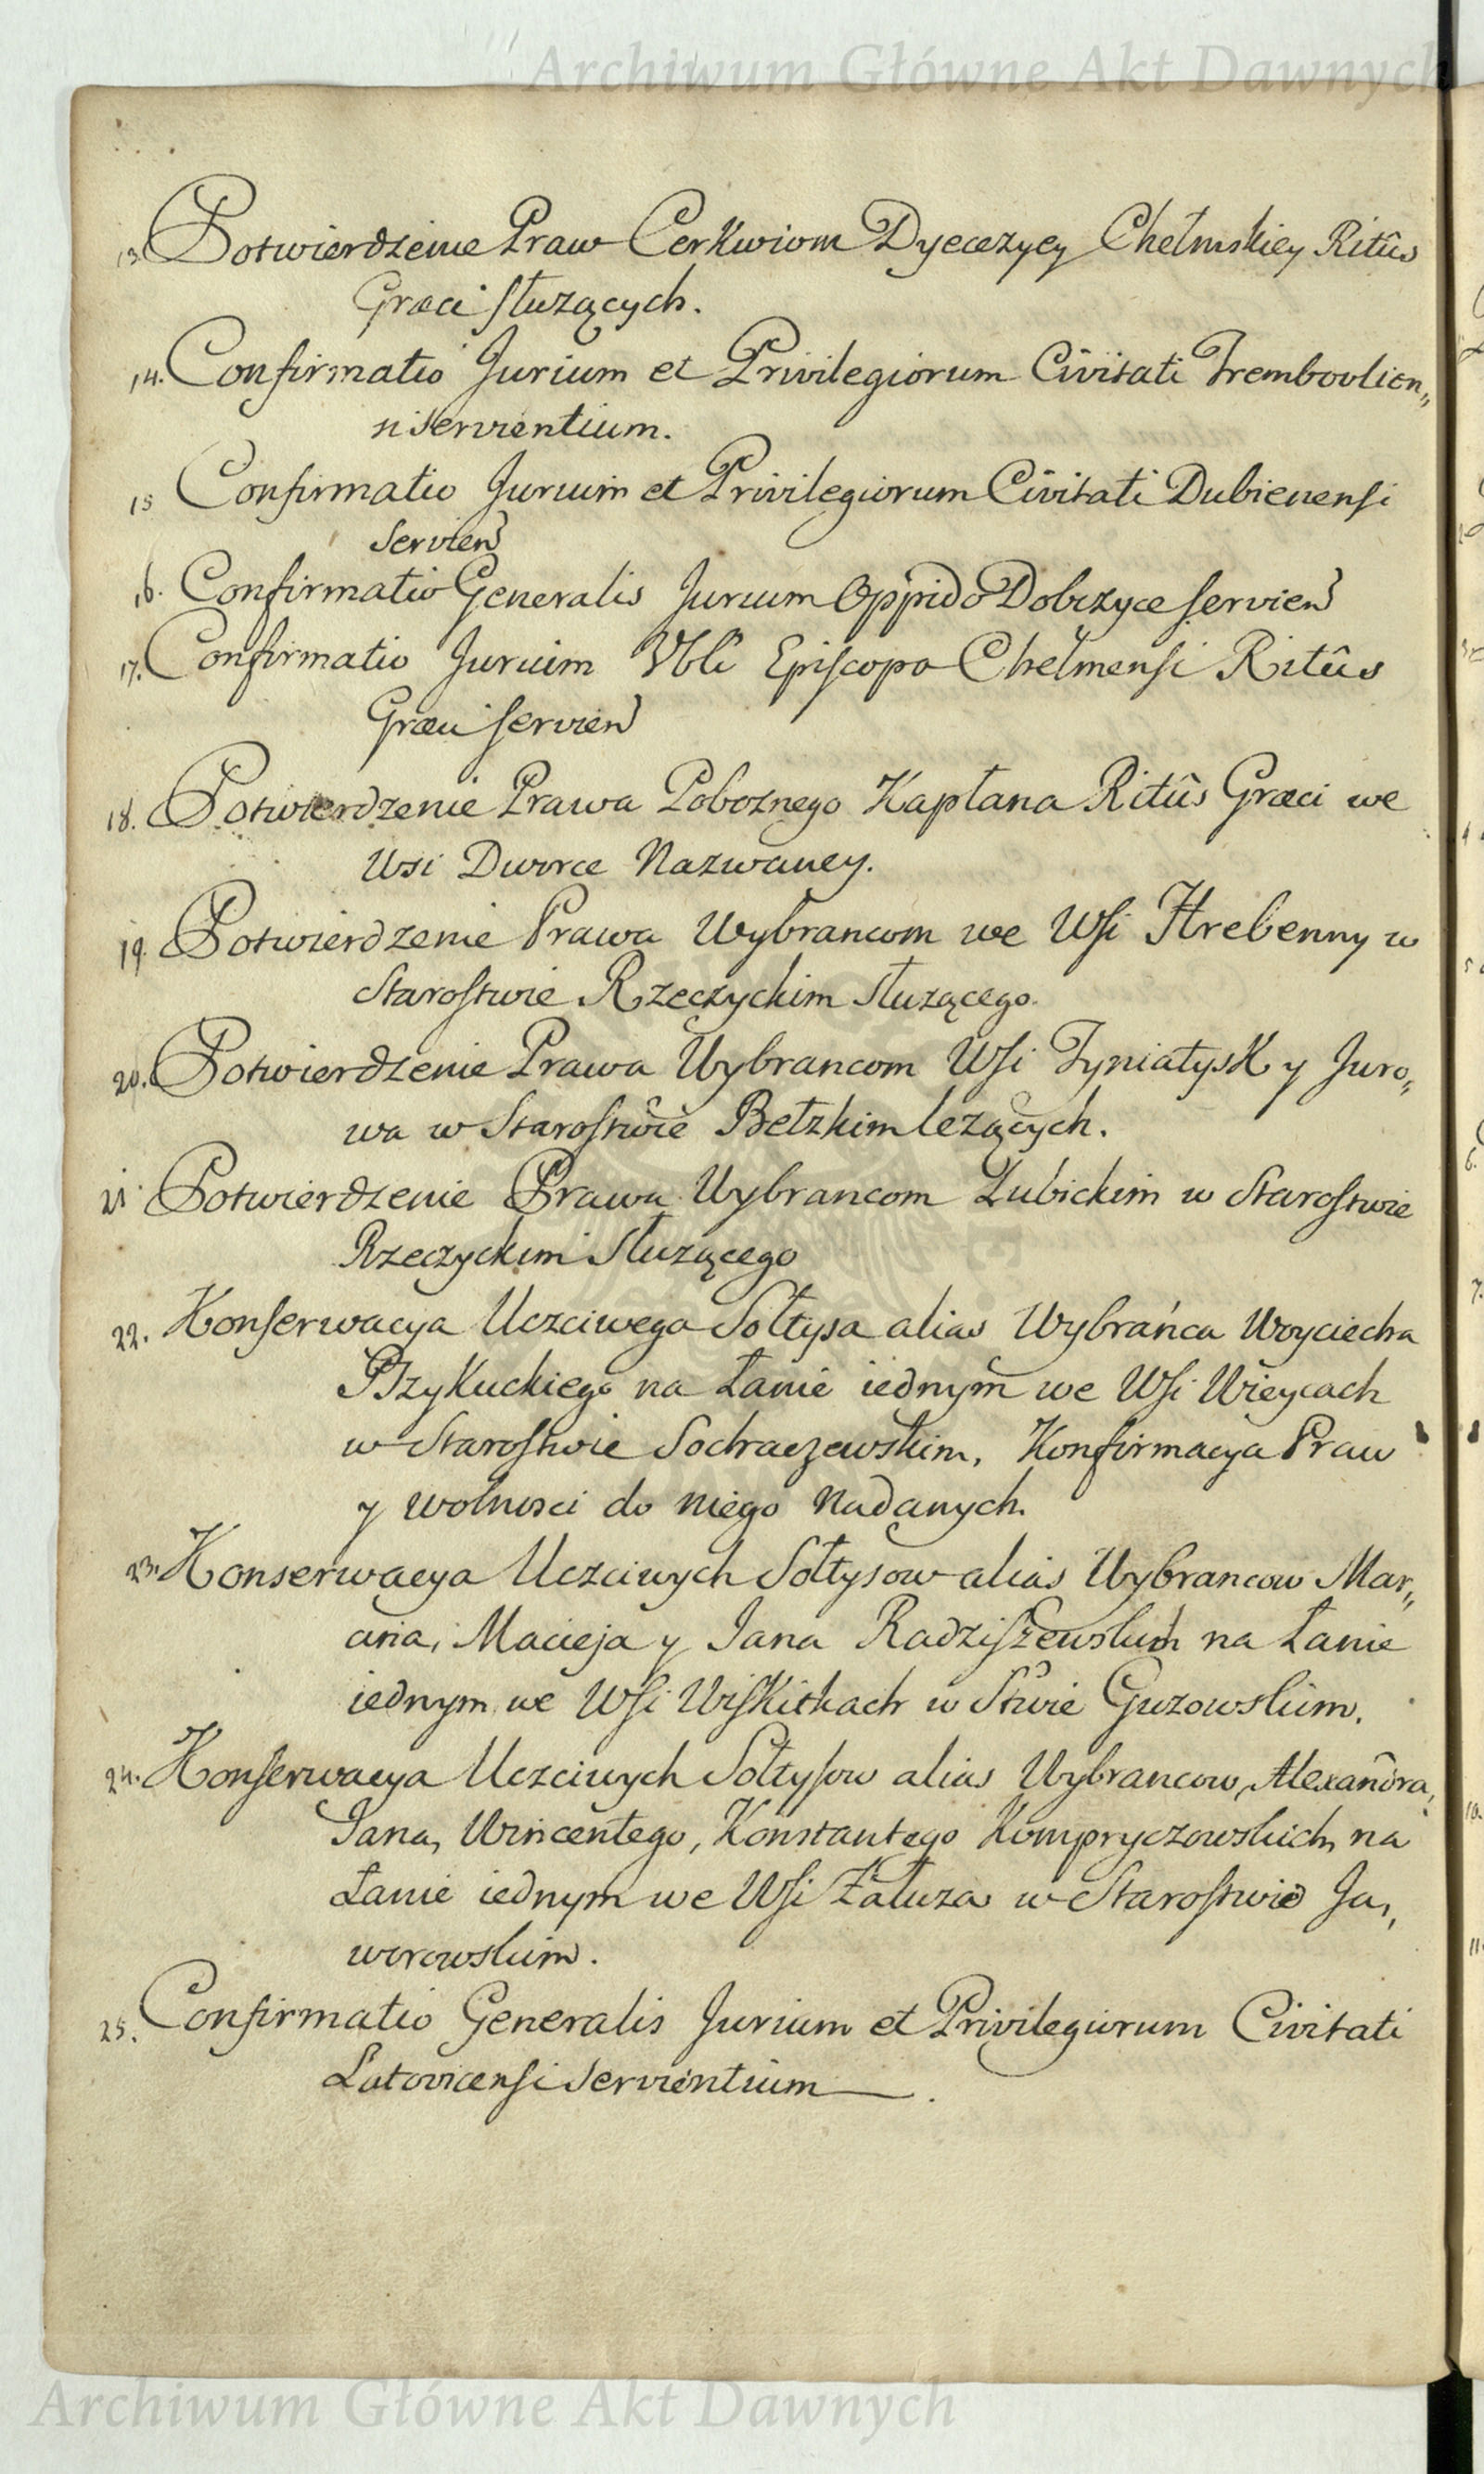 Archiwum Główne Akt Dawnych
13. Potwierdzenie Praw Cerkwiom Dyecezyey Chełmskiey Ritûs
Græci służących.
14. Confirmatio Jurium et Privilegiorum Civitati Trembovlien„
si servientium.
15 Confirmatio Jurium et Privilegiorum Civitati Dubienensi
Servien
16. Confirmatio Generalis Jurium Oppido Dobrzyce servien
17. Confirmatio Jurium Episcopo Chełmensi Ritûs
Græci servien
18. Potwierdzenie Prawa Poboznego Kapłana Ritûs Græci we
Wsi Dworce Nazwaney.
19. Potwierdzenie Prawa Wybrancom we Wsi Hrebenny w
Starostwie Rzeczyckim Służącego.
20. Potwierdzenie Prawa Wybrancom Wsi Tyniatysk y Juro„
wa w Starostwie Bełzkim lezących.
21 Potwierdzenie Prawa Wybrancom Lubickim w Starostwie
Rzeczyckim Służącego
22. Konserwacya Uczciwego Sołtysa alias Wybrańca Woyciecha
Przykuckiego na Łanie iednym we Wsi Wieycach
w Starostwie Sochaczewskim, Konfirmacya Praw
y wolnosci do niego Nadanych.
23. Konserwacya Uczciwych Sołtysow alias Wybrancow Mar„
cina, Macieja y Jana Radziszewskich na Łanie
iednym we Wsi Wiskitkach w Stwie Guzowskim.
24. Konserwacya Uczciwych Sołtysow alias Wybrancow, Alexandra,
Jana, Wincentego, Konstantego Kompryczowskich, na
Łanie iednym we Wsi Załuza w Starostwie Ja„
worowskim.
25. Confirmatio Generalis Jurium et Privilegiorum Civitati
Latovicensi Servientium.
Archiwum Główne Akt Dawnych